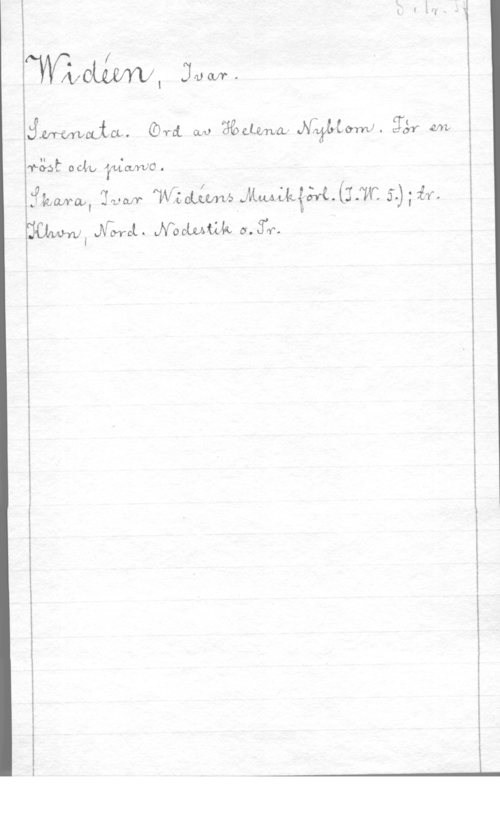 Widéen, Ivar.
Serenata. Ord av Helena Nyblom. För en
röst och piano.
Skara, Ivar Widéens Musikförl. (I.W. 5.); tr.
Khvn, Nord. Nodestik o. Tr.